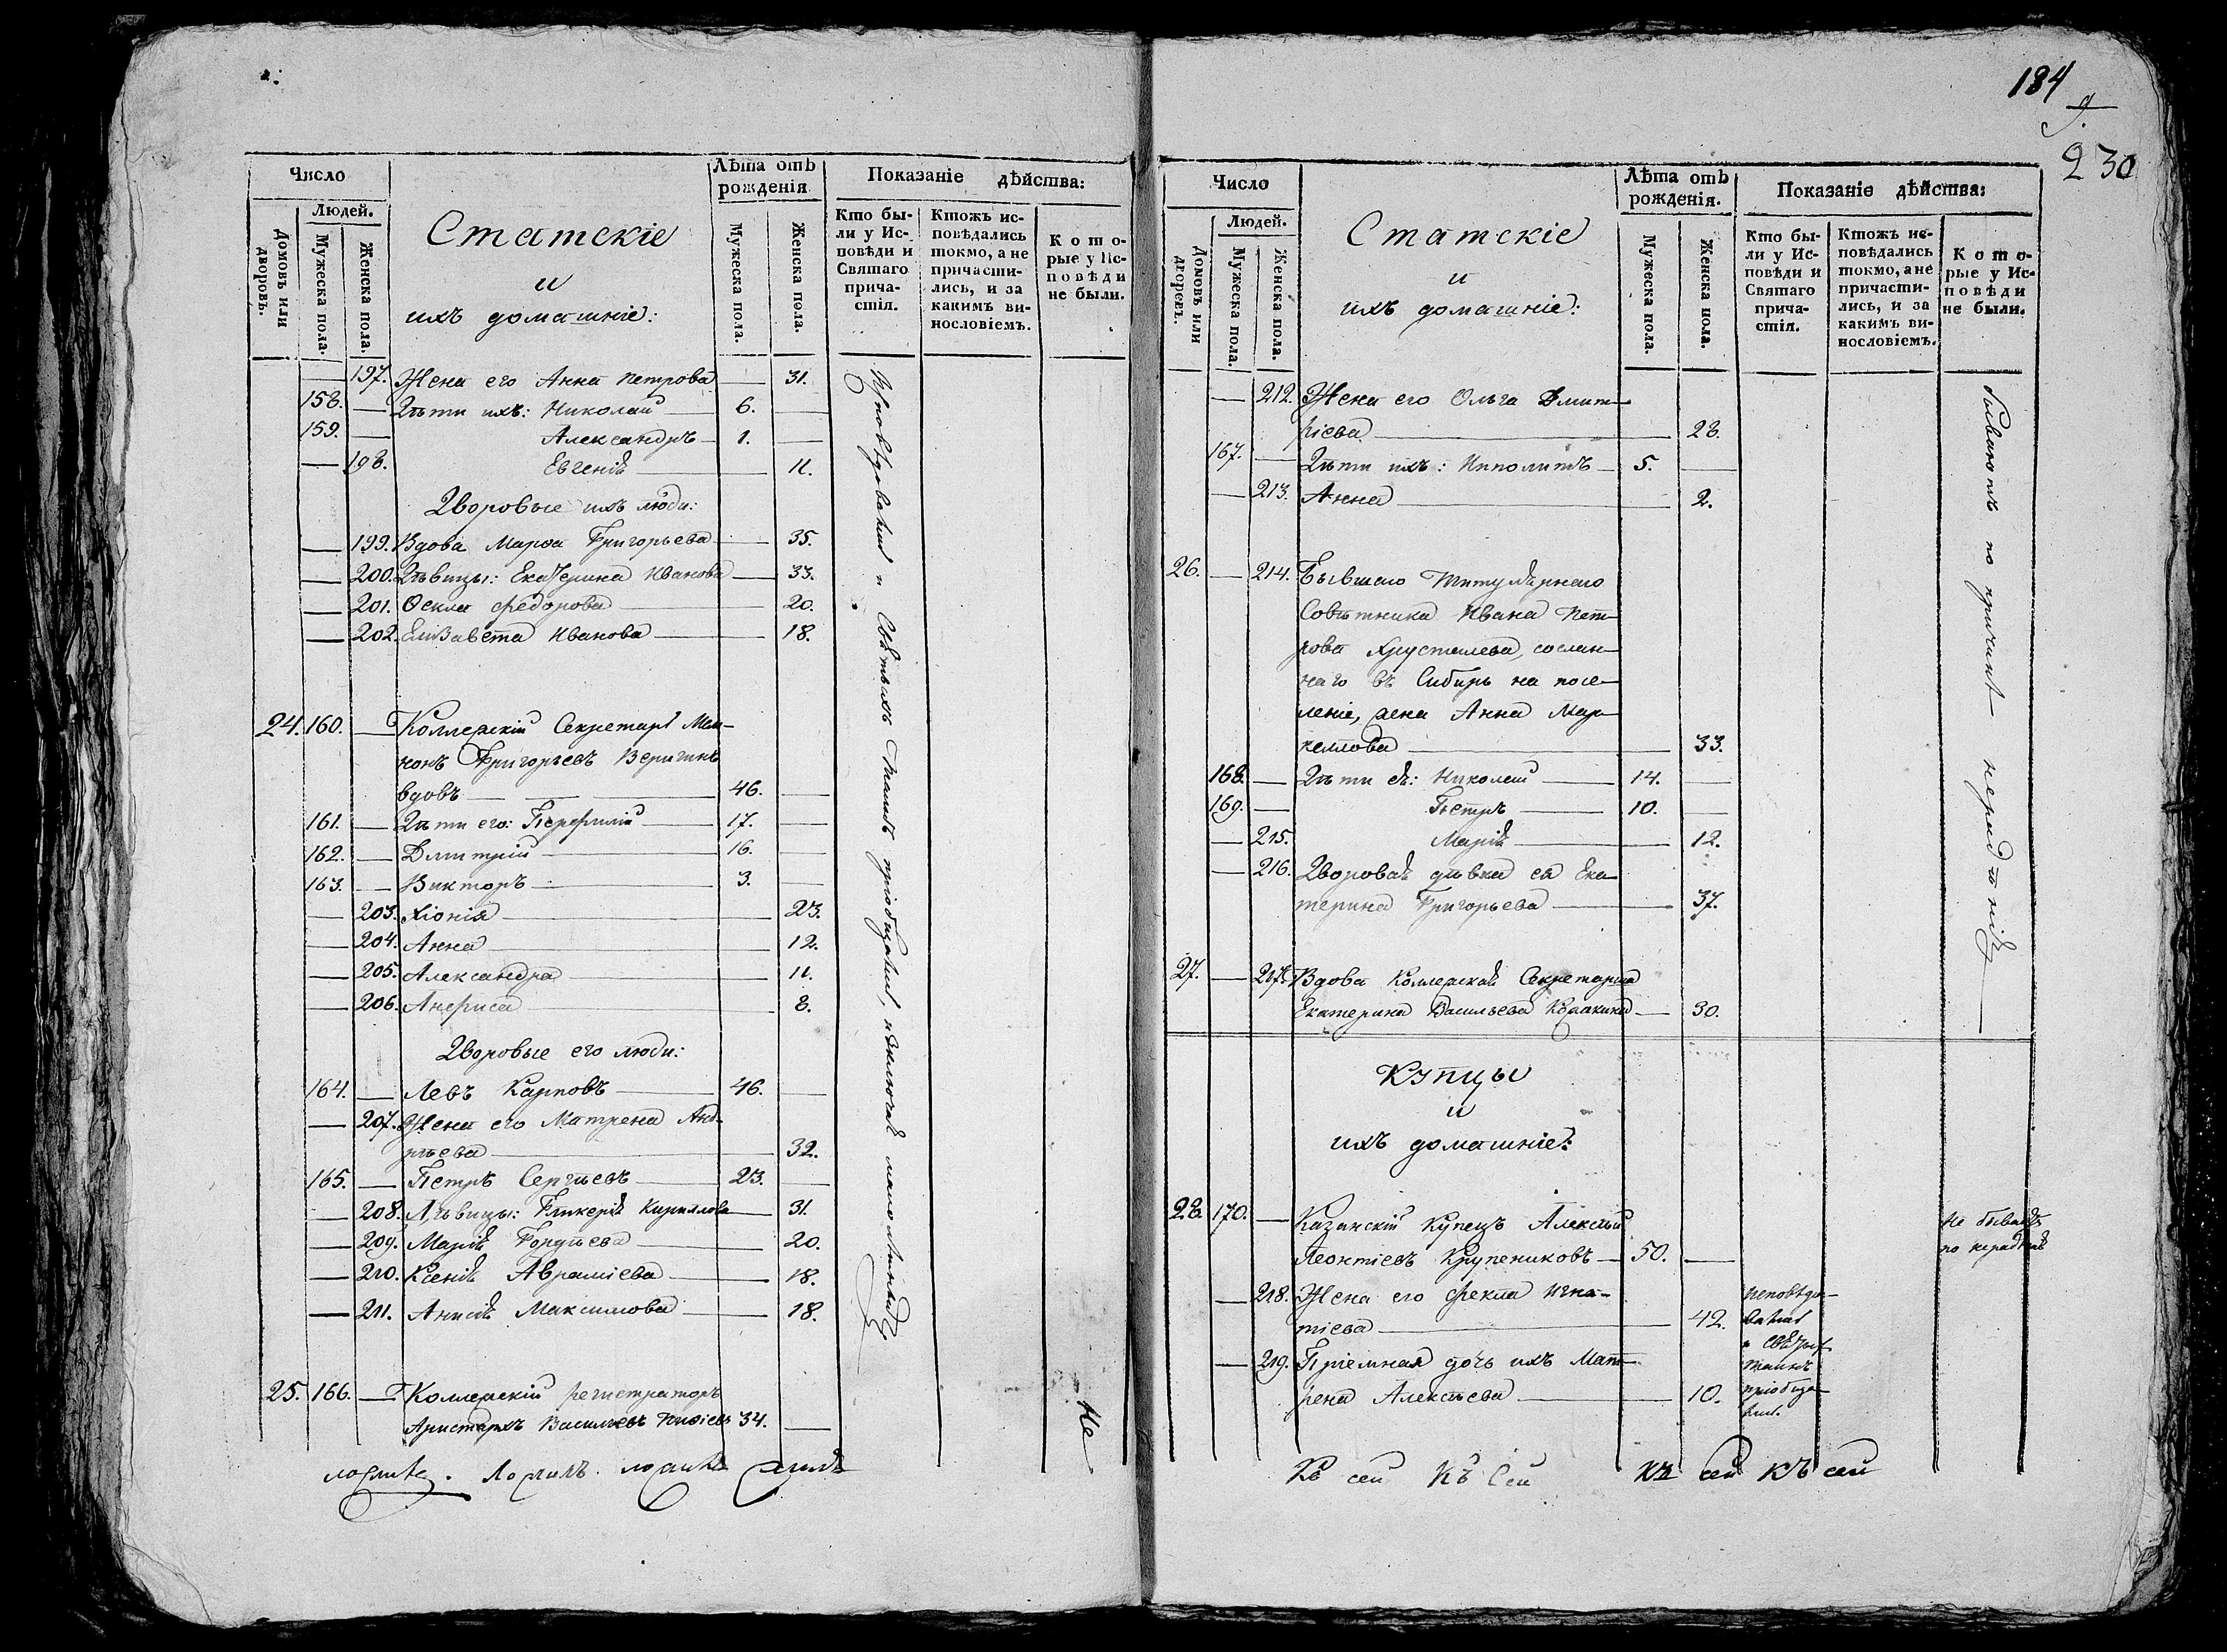 Число
Людей.
Домовъ или дворовъ.
Мужеска пола.
Женска пола.
Статскіе
и
ихъ домашніе:
Лѣта отъ рожденія
Мужеска пола.
Женска пола.
Показаніе дѣйства:
Кто были у Исповѣди и Святаго причастія.
Ктожъ исповѣдались токмо, а не причастились, и за какимъ винословіемъ.
Которые у Исповѣди не были.
197. Жена его Анна Петрова 31.
158. Дѣти ихъ: Николай 6.
159. Александръ 1.
198. Евгенія 11.
Дворовые ихъ люди:
199. Вдова Марѳа Григорьева 35.
200. Дѣвицы: Екатерина Иванова 33.
201. Ѳекла Федорова 20.
202. Елизавета Иванова 18.
24. 160. Коллежскій Секретарь Мем-
нонъ Григорьевъ Веригинъ
вдовъ 46.
161. Дѣти его: Перфилій 17.
162. Дмитрій 16.
163. Викторъ 3.
203. Хіонія 23.
204. Анна 12.
205. Александра 11.
206. Анфиса 8.
Дворовые его люди:
164. Левъ Карповъ 46.
207. Жена его Матрена Анд-
рѣева 32.
165. Петръ Сергѣевъ 23.
208. Дѣвицы: Гликерія Кирилова 31.
209. Марія Гордѣева 20.
210. Ксенія Авраміева 18.
211. Анисія Максимова 18.
25. 166. Коллежскій регистраторъ
Аристархъ Васильевъ 34.
Исповѣдовались и Святыхъ Таинъ пріобщались, исключая малолѣтныхъ
Не
184
9.
230
Число
Людей.
Домовъ или дворовъ.
Мужеска пола.
Женска пола.
Статскіе
и
ихъ домашніе:
Лѣта отъ рожденія.
Мужеска пола.
Женска пола.
Показаніе дѣйства:
Кто были у Исповѣди и Святаго причастія.
Ктожъ исповѣдались токмо, а не причастились, и за какимъ винословіемъ.
Которые у Исповѣди не были.
212. Жена его Ольга Дмит-
ріева 28.
167. Дѣти ихъ: Ипполитъ 5.
213. Анна 2.
26. 214. Бывшаго Титулярнаго
Совѣтника Ивана Пет-
рова Хрусталева, сослан-
наго въ Сибирь на посе-
леніе, жена Анна Мар-
келлова 33.
168. Дѣти ея: Николай 14.
169. Петръ 10.
215. Марія 12.
216. Дворовая дѣвка ея Ека-
терина Григорьева 37.
27. 217. Вдова Коллежская Секретарша
Екатерина Васильева 30.
бываютъ по причинѣ нерадѣнія
Купцы
и
ихъ домашніе:
28. 170. Казанскій купецъ Алексѣй
Леонтіевъ Крупениковъ 50.
Не бываетъ
по нерадѣнію
218. Жена его Фекла Игна-
тіева 42.
219. Пріемная дочь ихъ Мат-
рена Алексѣева 10.
Исповѣдо-
вались
и
Таинъ
пріобща-
лись.
Къ сей Къ Сей Къ сей Къ сей